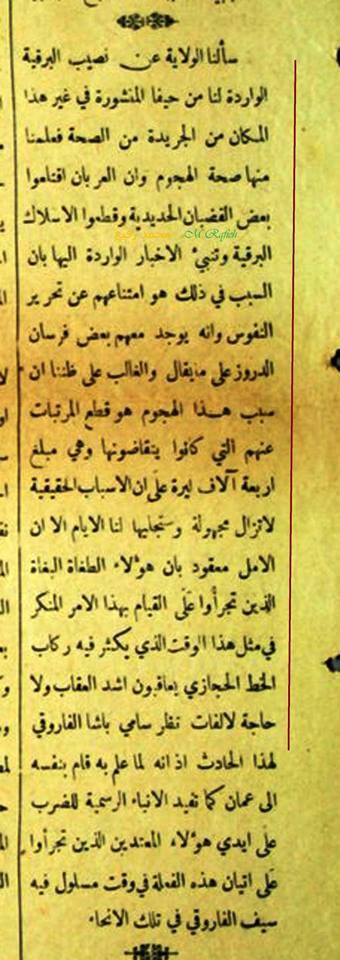 سألنا الولاية عن نصيب البرقية
الواردة لنا من حيفا المنشورة في غير هذا
المكان من الجريدة من الصحة فعلمنا
منها صحة الهجوم وان العربان اقتلعوا
بعض القضبان الحديدية وقطعوا الاسلاك
M.Rafieh
البرقية وتنبيء الاخبار الواردة اليها بان
السبب في ذلك هو امتناعهم عن تحرير
النفوس وانه يوجد معهم بعض فرسان
الدروز على مايقال والغالب على ظننا ان
سبب هذا الهجوم هو قطع المرتبات
عنهم التي كانوا يتقاضونها وهي مبلغ
اربعة آلاف ليرة على ان الاسباب الحقيقية
لاتزال مجهولة وستجليها لنا الايام الا ان
الامل معقود بان هؤلاء الطغاة البغاة
الذين تجرأوا على القيام بهذا الامر المنكر
في مثل هذا الوقت الذي يكثر فيه ركاب
الخط الحجازي يعاقبون اشد العقاب ولا
حاجة لالفات نظر سامي باشا الفاروقي
لهذا الحادث اذ انه لما علم به قام بنفسه
الى عمان كما تفيد الانباء الرسمية للضرب
على ايدي هؤلاء المعتدين الذين تجرأوا
على اتيان هذه الفعلة في وقت مسلول فيه
سيف الفاروقي في تلك الانحاء